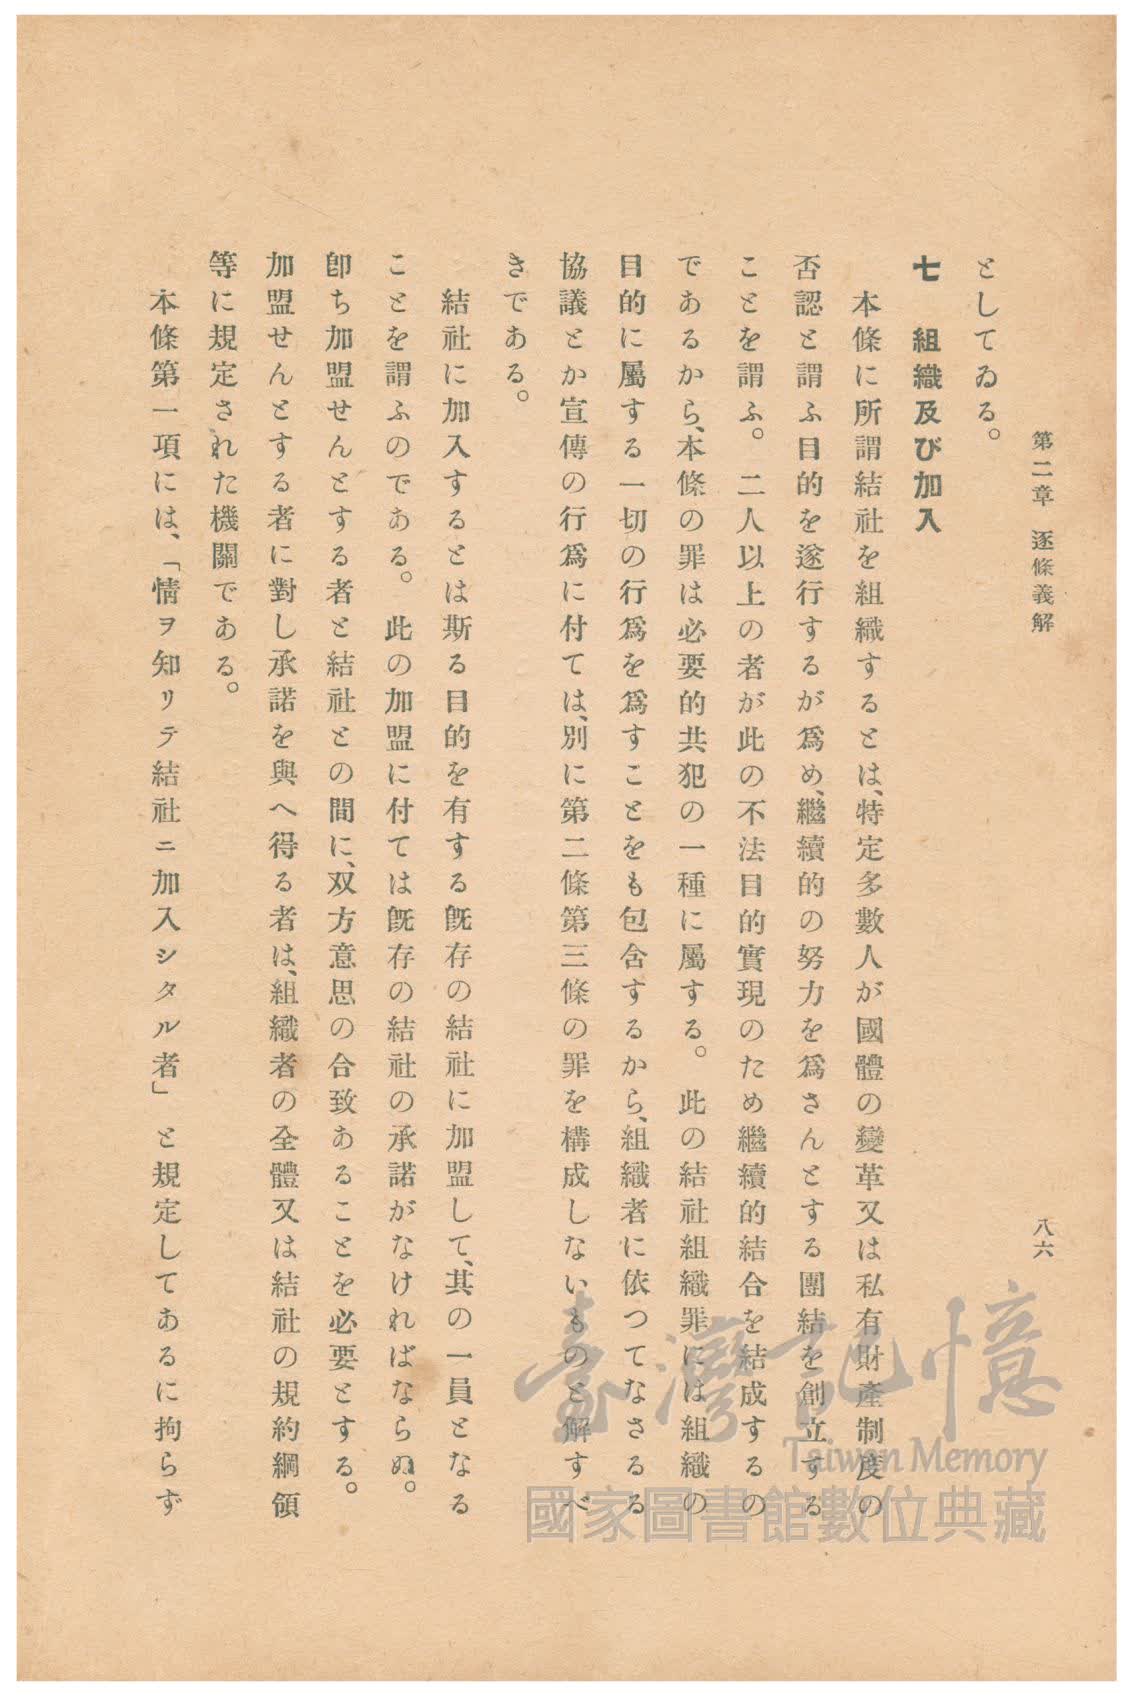 第二章　逐條義解
八六
としてゐる。
七　組織及び加入
本條に所謂結社を組織するとは、特定多數人が國體の變革又は私有財產制度の
否認と謂ふ目的を遂行するが爲め、繼續的の努力を爲さんとする團結を創立する
ことを謂ふ。二人以上の者が此の不法目的實現のため繼續的結合を結成するの
であるから、本條の罪は必要的共犯の一種に屬する。此の結社組織罪には組織の
目的に屬する一切の行爲を爲すことをも包含するから、組織者に依つてなさるる
協議とか宣傳の行爲に付ては、別に第二條第三條の罪を構成しないものと解すべ
きである。
結社に加入するとは斯る目的を有する旣存の結社に加盟して、其の一員となる
ことを謂ふのである。此の加盟に付ては旣存の結社の承諾がなければならぬ。
卽ち加盟せんとする者と結社との間に、双方意思の合致あることを必要とする。
加盟せんとする者に對し承諾を與へ得る者は、組織者の全體又は結社の規約綱領
等に規定された機關である。
本條第一項には、「情ヲ知リテ結社ニ加入シタル者」と規定してあるに拘らず
臺灣記憶
Taiwan Memory
國家圖書館數位典藏